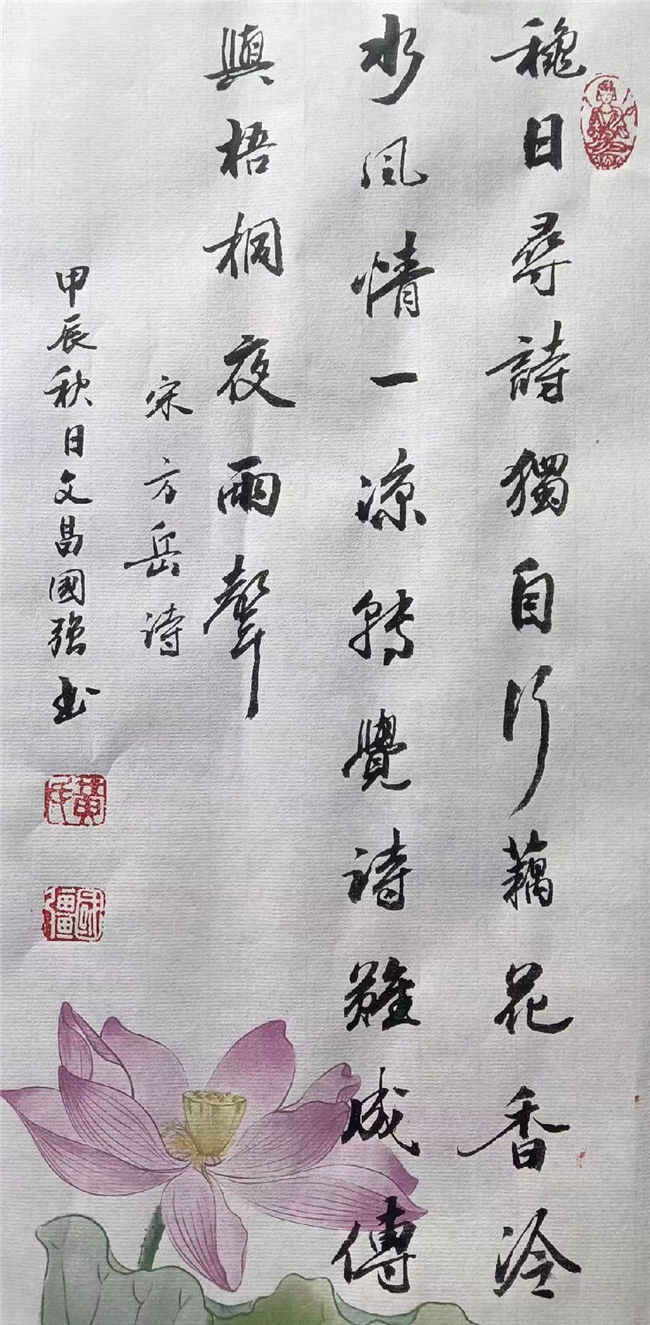 穐日尋詩獨自行藕花香冷
水風情一凉轉覺詩難成傳
與梧桐夜雨聲
宋方岳詩
甲辰秋日文昌國强书